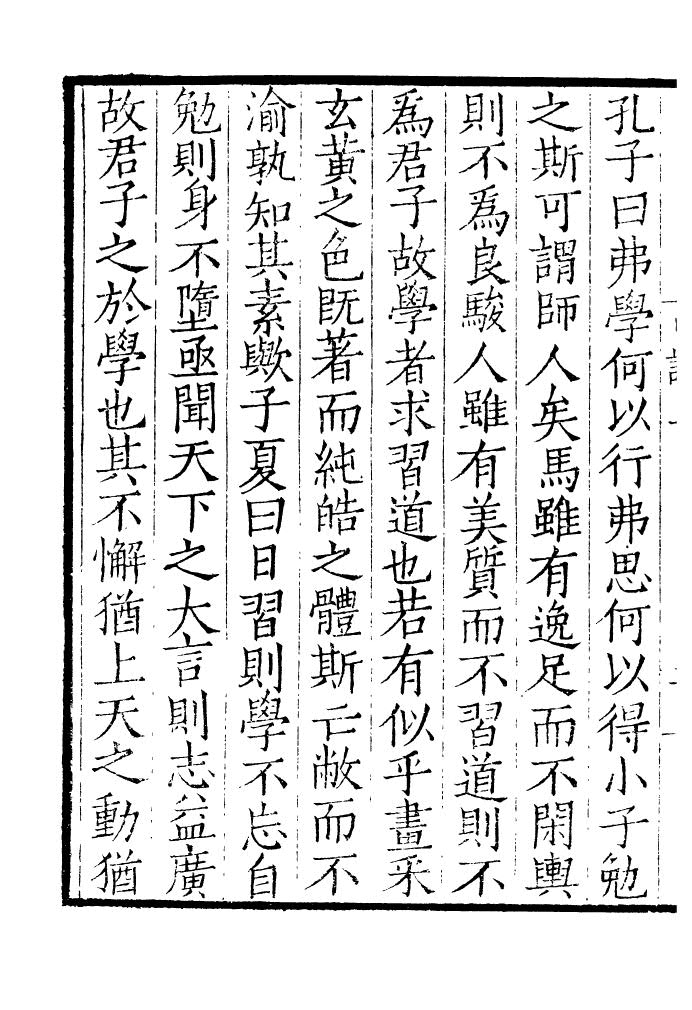 孔子曰弗學何以行弗思何以得小子勉
之斯可謂師人矣馬雖有逸足而不閑輿
則不爲良駿人雖有美質而不習道則不
爲君子故學者求習道也若有似乎畫采
玄黃之色既著而純皓之體斯亡敝而不
渝孰知其素歟子夏曰日習則學不忘自
勉則身不墮亟聞天下之大言則志益廣
故君子之於學也其不懈猶上天之動猶